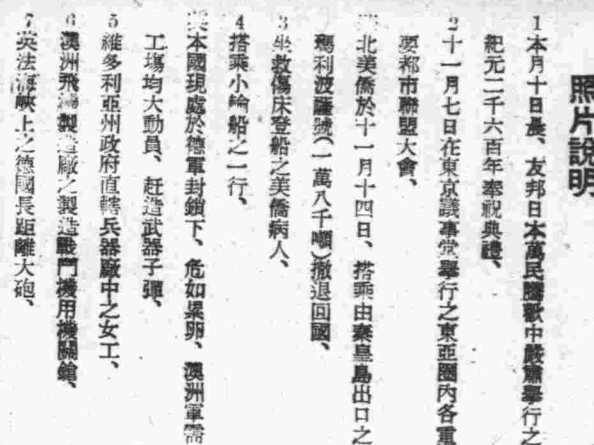 照片說明
1本月十日晨、友邦日本萬民騰歡中嚴肅舉行之
紀元二千六百年奉祝典禮、
2十一月七日在東京議事堂舉行之東亞圈內各重
要都市聯盟大會、
北美僑於十一月十四日、搭乘由秦皇島出口之
瑪利波薩號(一萬八千噸)撤退回國、
3坐救傷床登船之美僑病人、
4搭乘小輪船之一行、
本國現處於德軍封鎖下、危如累卵、澳洲軍需
工場均大動員、赶造武器子彈、
5維多利亞州政府直轄兵器廠中之女工、
6澳洲飛機製造廠之製造戰鬥機用機關鎗、
7英法海峽上之德國長距離大砲、